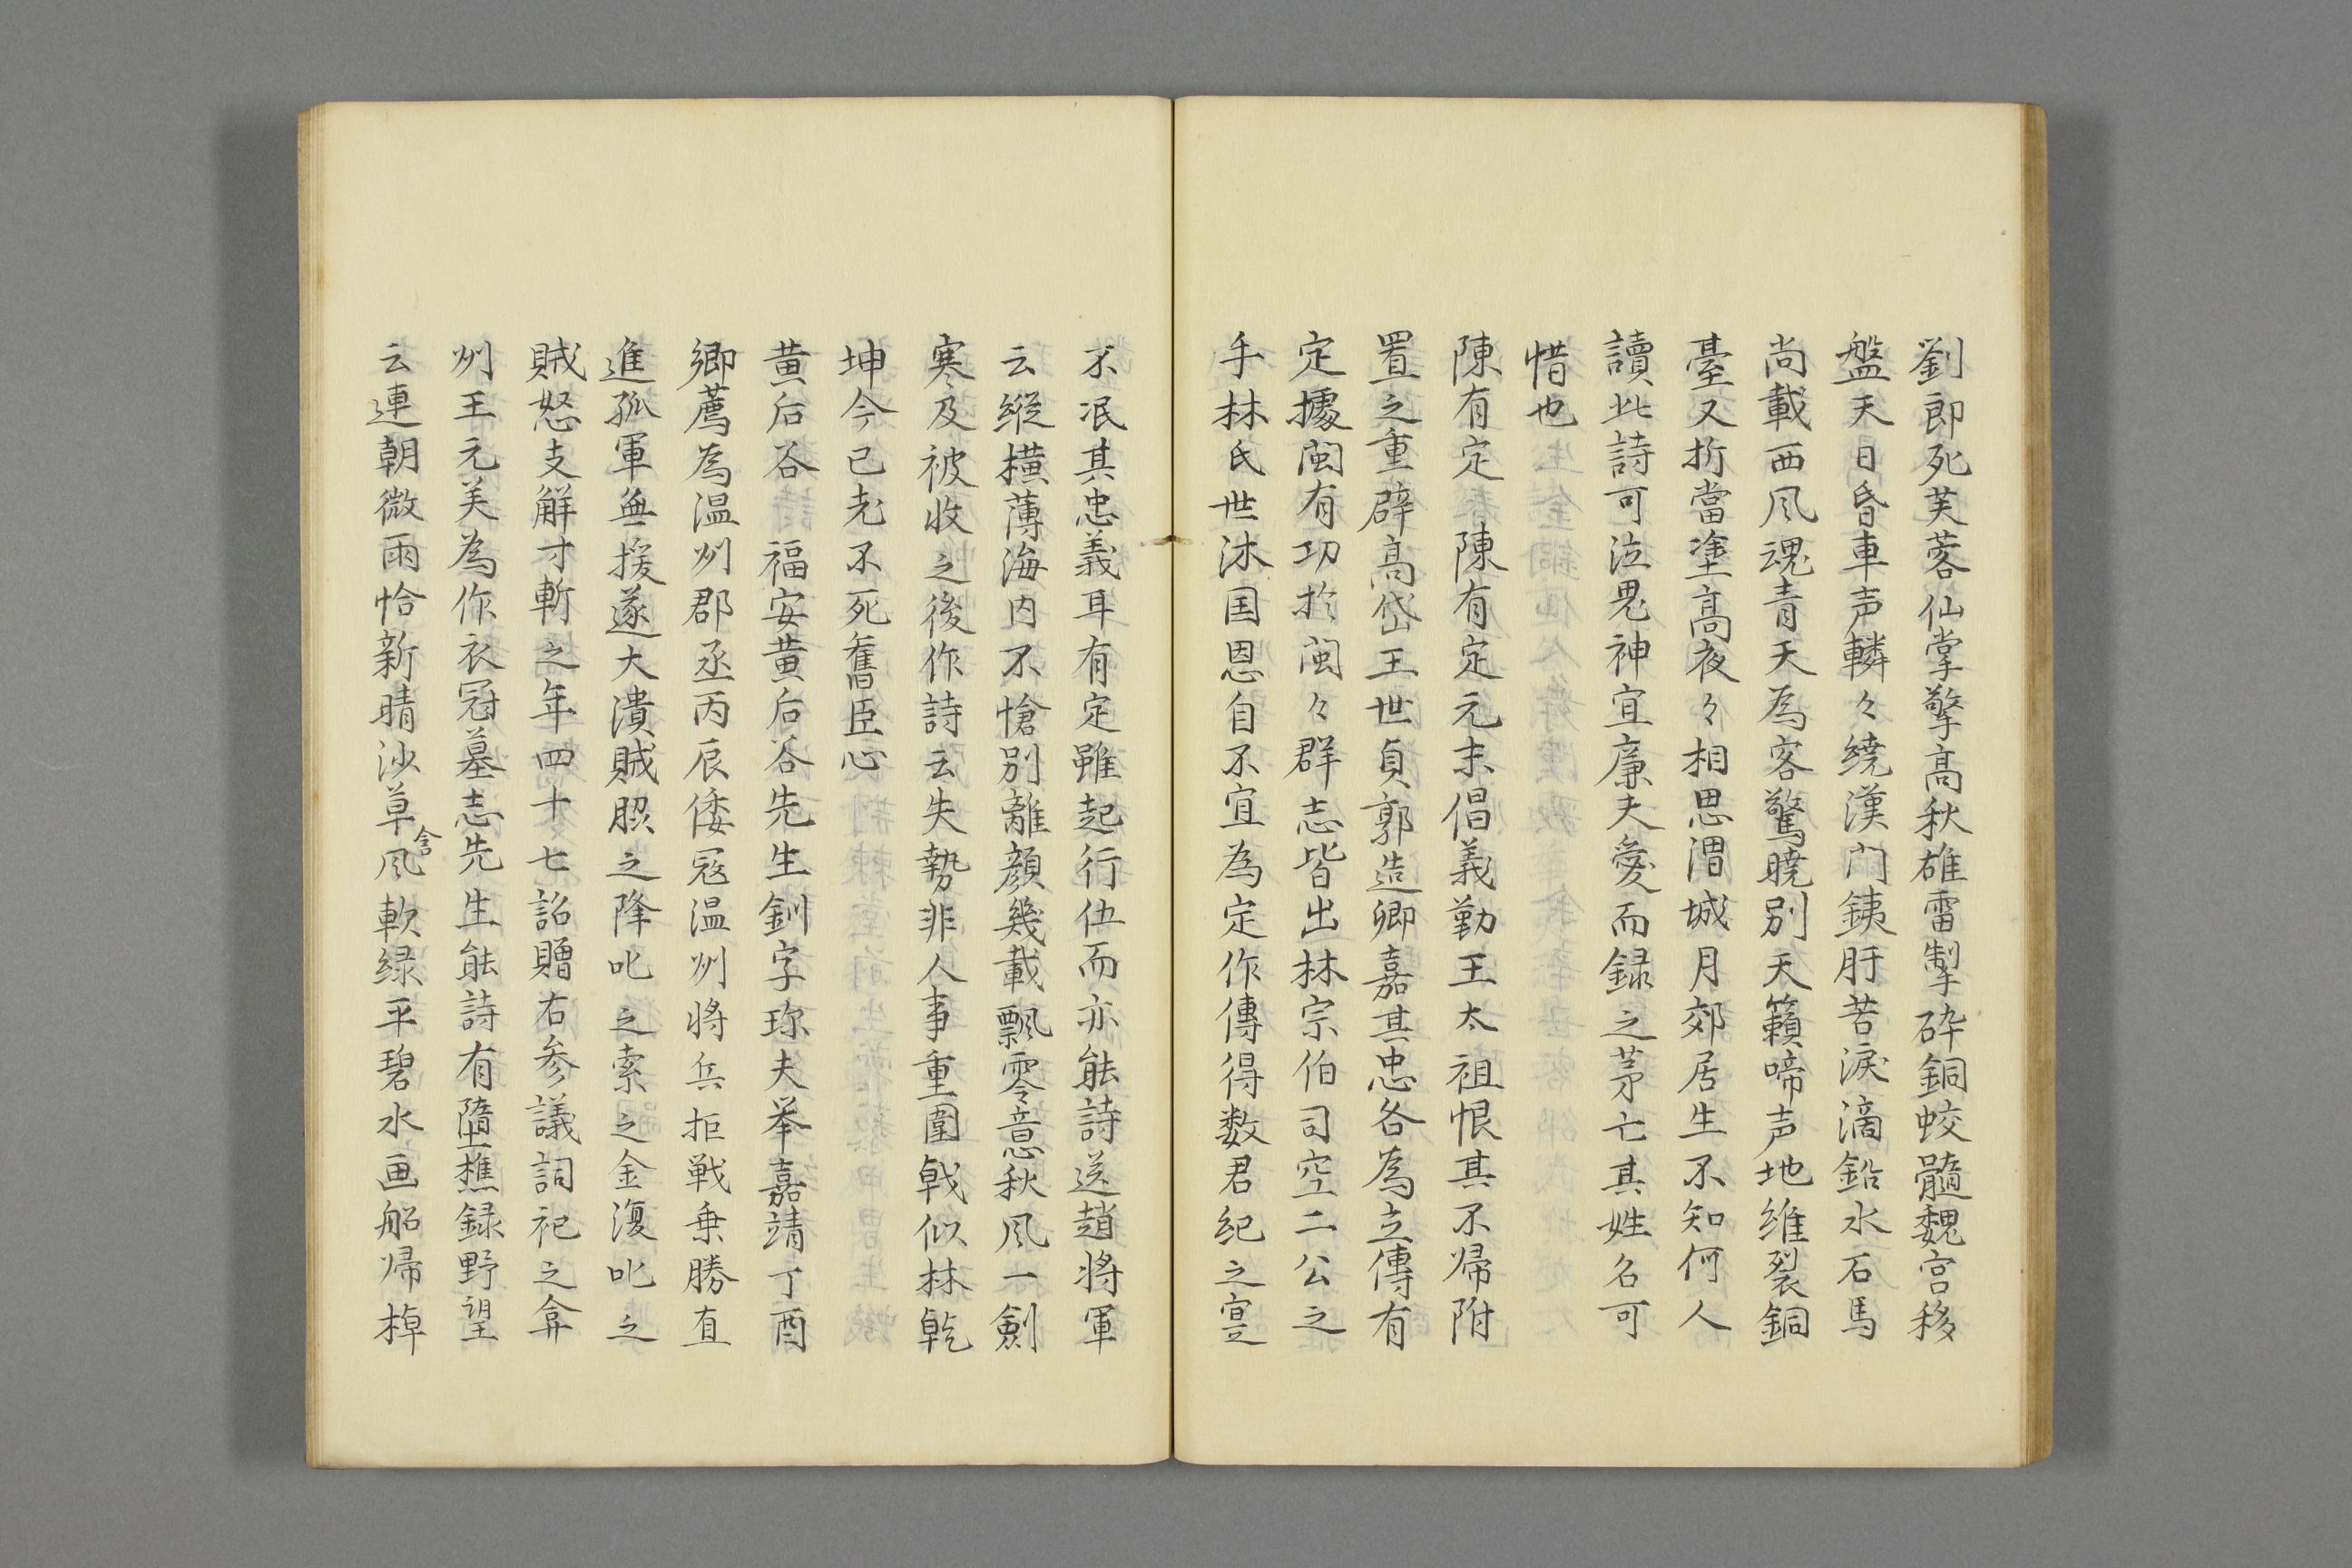 劉郎死芙蓉仙掌擎高秋雄雷掣砕銅蛟髓魏宮移
盤天日昏車声轔々繞漢门銕肝苦淚滴鉛水石馬
尚載西风魂青天為客驚曉別天籟啼声地維裂銅
臺又折當塗高夜々相思渭城月郊居生不知何人
讀此詩可泣鬼神宜廉夫愛而録之茅亡其姓名可
惜也
陳有定　陳有定元末倡義勤王太祖恨其不帰附
置之重辟高岱王世貞郭造卿嘉其忠各為立傳有
定據閩有功於閩々群志皆出林宗伯司空二公之
手林氏世沐国恩自不宜為定作傳得数君紀之寔
不泯其忠義耳有定雖起行伍而亦能詩送趙将軍
云縱横薄海内不愴別離顔幾載飄零意秋风一劍
寒及被收之後作詩云失勢非人事重圍戟似林乹
坤今已老不死舊臣心
黄后谷　福安黄后谷先生釧字珎夫举嘉靖丁酉
卿薦為温州郡丞丙辰倭冦温州将兵拒戦乗勝直
進孤軍無援遂大潰賊脅之降叱之索之金復叱之
賊怒支解寸斬之年四十七詔贈右参議詞祀之弇
州王元美為作衣冠墓志先生能詩有墮樵録野望
云連朝微雨恰新晴沙草含风軟绿平碧水画船帰棹